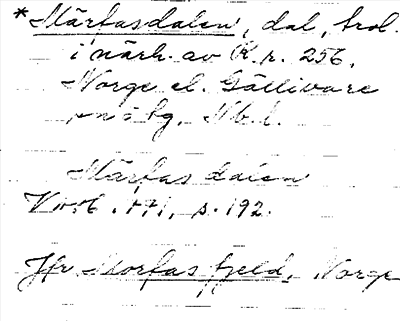 *Märfasdalen, dal, trol.
i närh. av R.r. 256,
Norge el. Gällivare
snobg. Nb.l.
Märfas dalen
s. 192.
Jfr Morfas fjeld, Norge